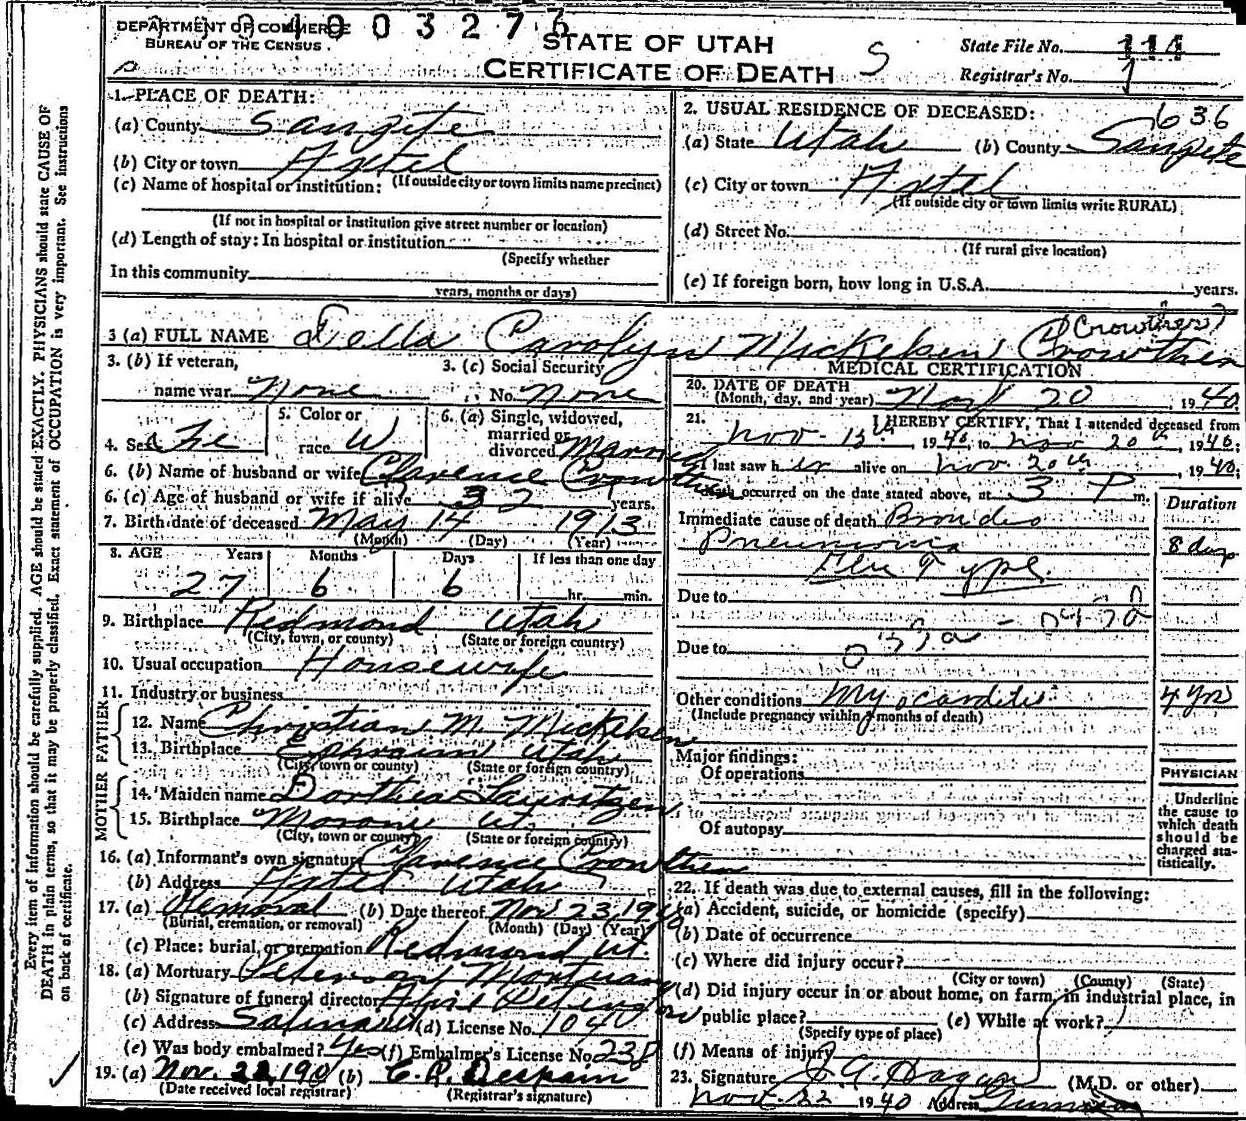 DEPARTMENT OF COMMERCE
BUREAU OF THE CENSUS
4003276
STATE OF UTAH
CERTIFICATE OF DEATH
S
State File No. 111
Registrar's No. 1
Every item of information should be carefully supplied. AGE should be stated EXACTLY. PHYSICIANS should state CAUSE OF
DEATH in plain terms, so that it may be properly classified. Exact statement of OCCUPATION is very important. See instructions
on back of certificate.
1. PLACE OF DEATH:
(a) County Sanpete
(b) City or town Axtel
(If outside city or town limits name precinct)
(c) Name of hospital or institution:
(If not in hospital or institution give street number or location)
(d) Length of stay: In hospital or institution
(Specify whether
In this community
years, months or days)
2. USUAL RESIDENCE OF DECEASED:
636
(a) State Utah (b) County Sanpete
(c) City or town Axtel
(If outside city or town limits write RURAL)
(d) Street No.
(If rural give location)
(e) If foreign born, how long in U.S.A. years.
3 (a) FULL NAME Della Carolyn Mickelsen Crowther
(Crowther)
3. (b) If veteran,
name war None
3. (c) Social Security
No. None
4. Sex Fe
5. Color or
race W
6. (a) Single, widowed,
married or
divorced Married
6. (b) Name of husband or wife Clarence Crowther
6. (c) Age of husband or wife if alive 32 years.
7. Birth date of deceased May 14 1913
(Month) (Day) (Year)
8. AGE Years Months Days If less than one day
27 6 6 hr. min.
9. Birthplace Redmond Utah
(City, town, or county) (State or foreign country)
10. Usual occupation Housewife
11. Industry or business
FATHER
12. Name Christian M. Mickelsen
13. Birthplace Ephraim Utah
(City, town or county) (State or foreign country)
MOTHER
14. Maiden name Dorthea Lauritzen
15. Birthplace Moroni Ut.
(City, town or county) (State or foreign country)
16. (a) Informant's own signature Clarence Crowther
(b) Address Axtel Utah
17. (a) Removal (b) Date thereof Nov 23, 1940
(Burial, cremation, or removal) (Month) (Day) (Year)
(c) Place: burial, or cremation Redmond Ut.
18. (a) Mortuary Peterson Mortuary
(b) Signature of funeral director
(c) Address Salina Ut (d) License No. 1040
(e) Was body embalmed? Yes (f) Embalmer's License No. 238
19. (a) Nov. 22 190 (b) C. R. Despain
(Date received local registrar) (Registrar's signature)
MEDICAL CERTIFICATION
20. DATE OF DEATH
(Month, day, and year) Nov 20, 1940
21. I HEREBY CERTIFY, That I attended deceased from
Nov. 13th 1940, to Nov 20th, 1940;
I last saw her alive on Nov. 20th 1940;
death occurred on the date stated above, at 3 P m.
Duration
Immediate cause of death Broncho
Pneumonia 8 days
Flu Type.
Due to
Due to
Other conditions Myocarditis 4 yrs
(Include pregnancy within 3 months of death)
Major findings:
Of operations
Of autopsy
PHYSICIAN
Underline
the cause to
which death
should be
charged sta-
tistically.
22. If death was due to external causes, fill in the following:
(a) Accident, suicide, or homicide (specify)
(b) Date of occurrence
(c) Where did injury occur?
(City or town) (County) (State)
(d) Did injury occur in or about home, on farm, in industrial place, in
public place? (e) While at work?
(Specify type of place)
(f) Means of injury
23. Signature J. A. Hagan (M.D. or other)
Nov. 22 1940 Address Gunnison